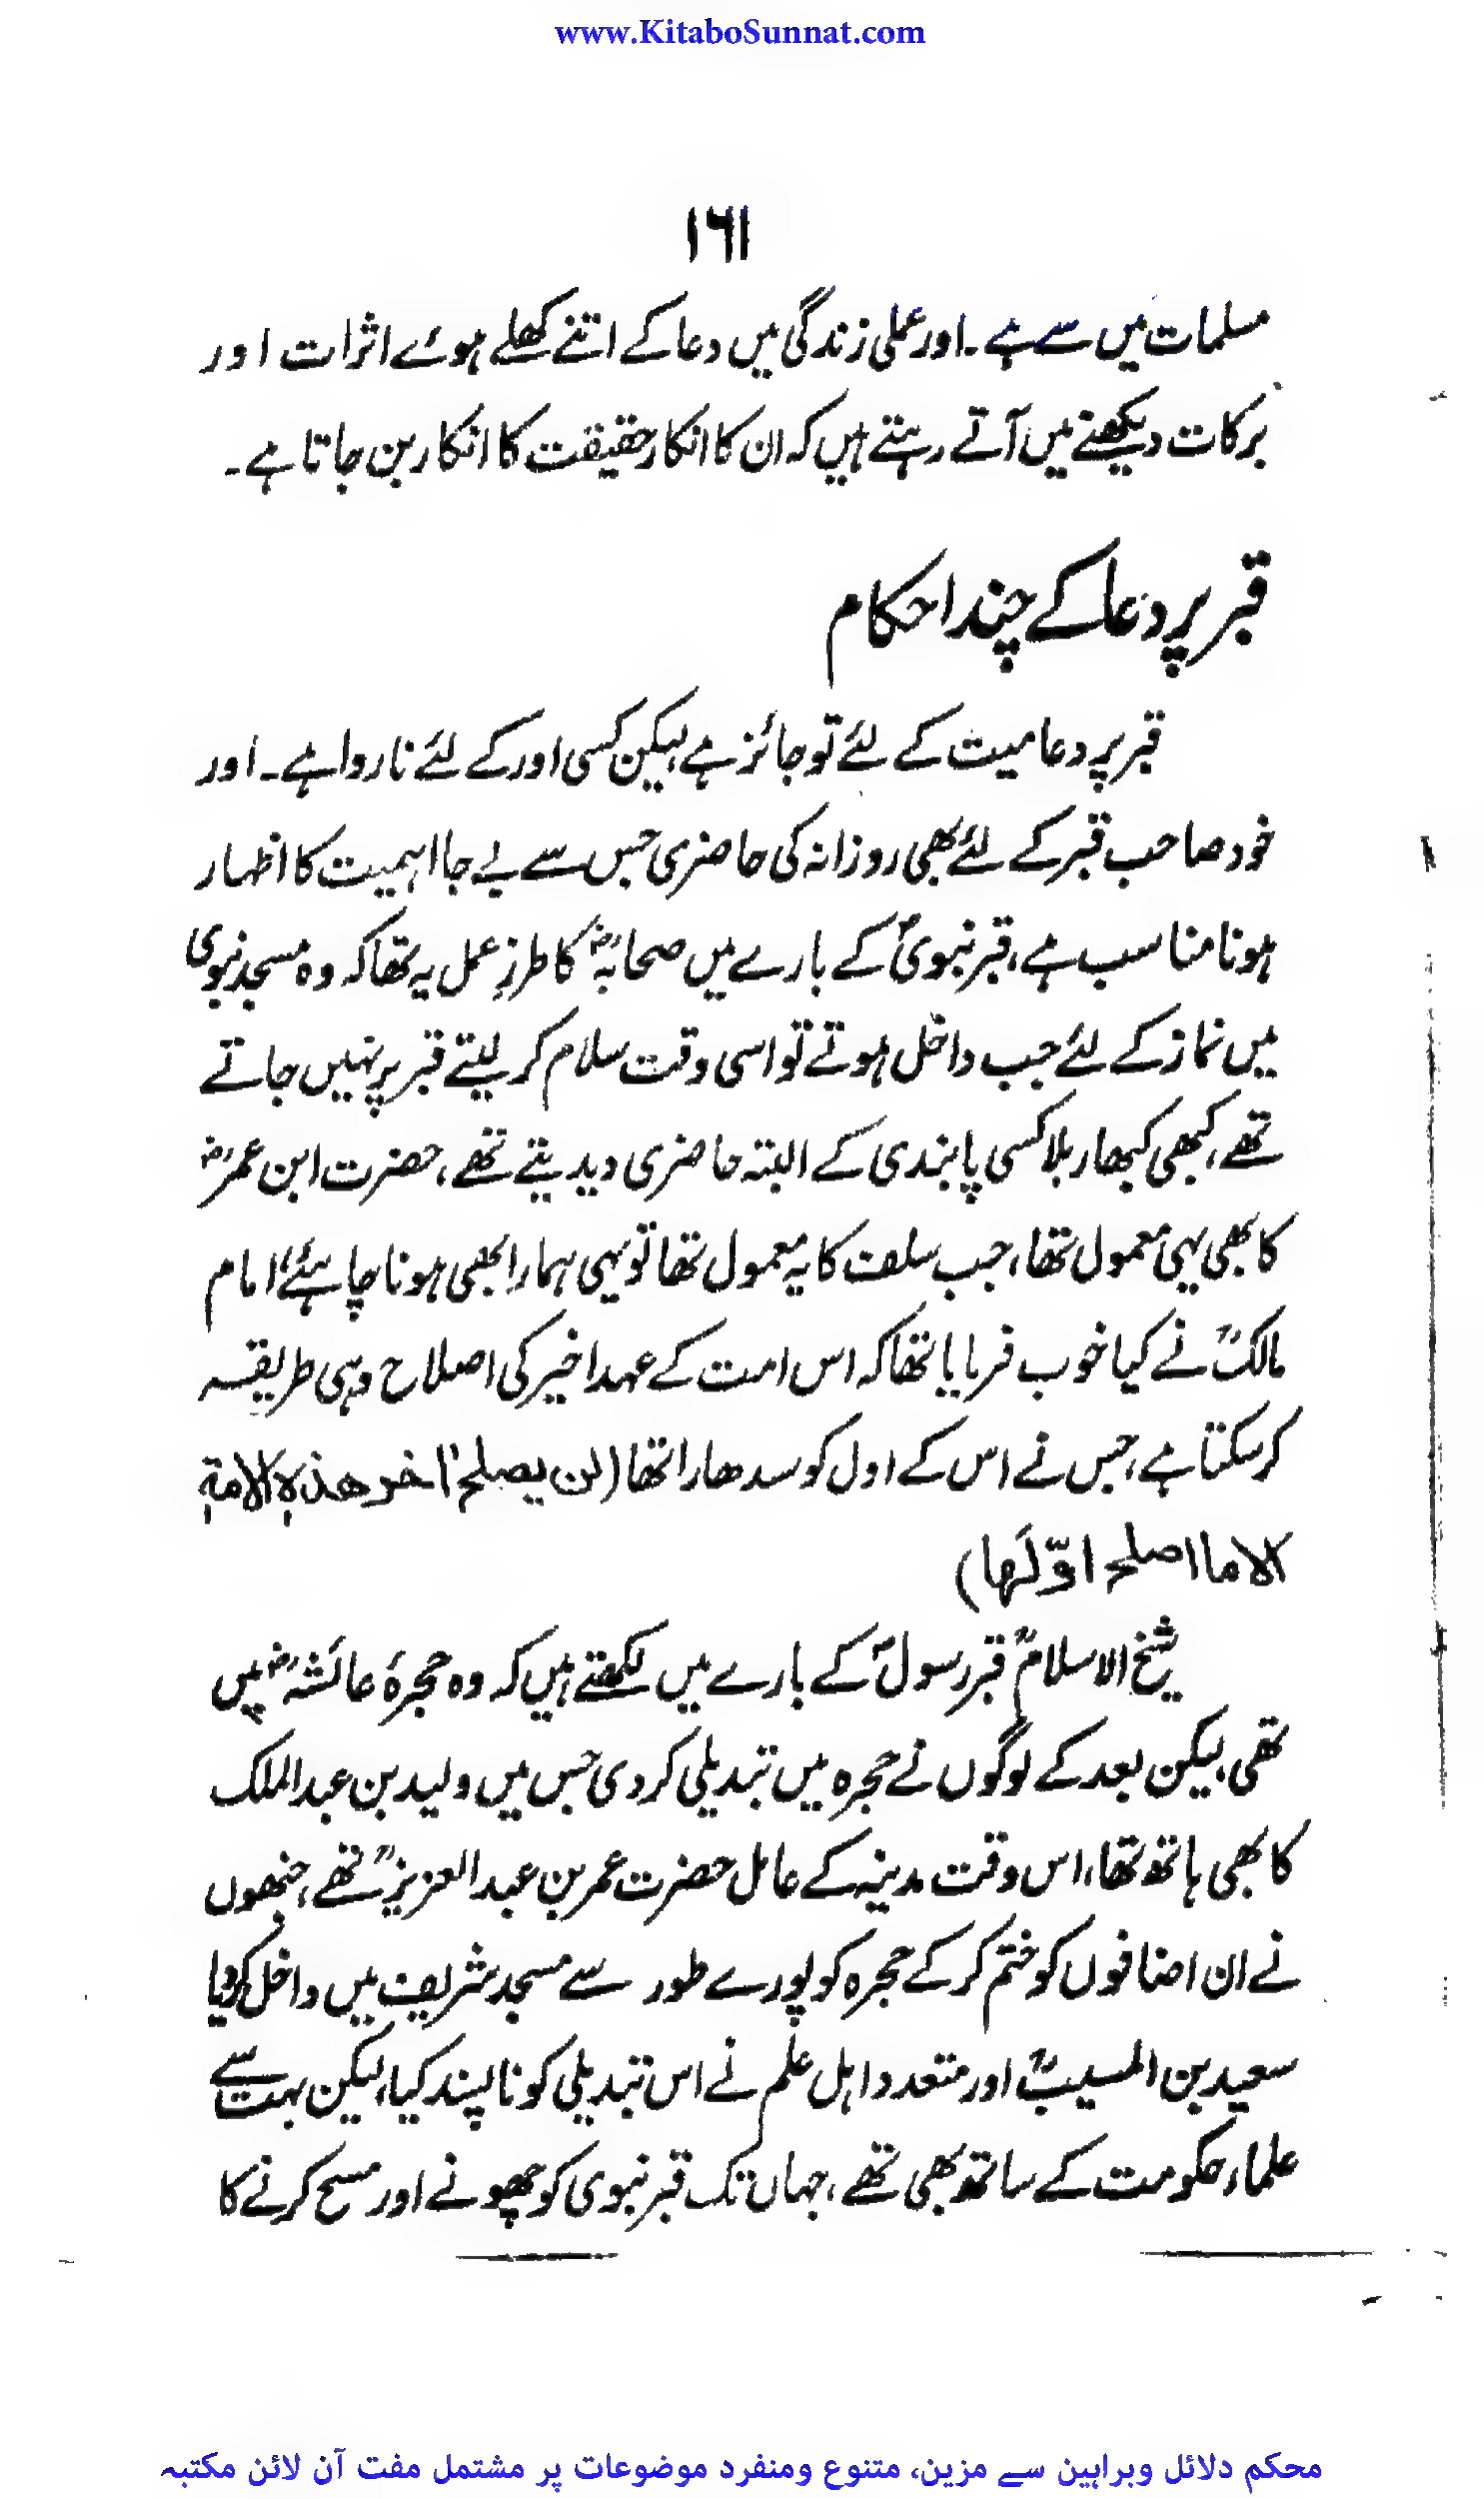 www.KitaboSunnat.com
۱۶۱
مسلمات میں سے ہے۔ اور عملی زندگی میں دعا کے اتنے کھلے ہوئے اثرات اور
برکات دیکھنے میں آتے رہتے ہیں کہ ان کا انکار حقیقت کا انکار بن جاتا ہے۔
قبر پر دعا کے چند احکام
قبر پر دعا میت کے لئے تو جائز ہے، لیکن کسی اور کے لئے ناروا ہے۔ اور
خود صاحب قبر کے لئے بھی روزانہ کی حاضری جس سے بے جا اہمیت کا اظہار
ہو نا مناسب ہے، قبر نبویؐ کے بارے میں صحابہؓ کا طرزِ عمل یہ تھا کہ وہ مسجد نبوی
میں نماز کے لئے جب داخل ہوتے تو اسی وقت سلام کر لیتے قبر پر نہیں جاتے
تھے، کبھی کبھار بلا کسی پابندی کے البتہ حاضری دیدیتے تھے، حضرت ابن عمرؓ
کا بھی یہی معمول تھا، جب سلف کا یہ معمول تھا تو یہی ہمارا بھی ہونا چاہئے، امام
مالکؒ نے کیا خوب فرمایا تھا کہ اس امت کے عہد اخیر کی اصلاح وہی طریقہ
کر سکتا ہے، جس نے اس کے اول کو سدھارا تھا (لن یصلح اٰخر ھذہِ الامۃِ
الا ما اصلح اوّلَھا)
شیخ الاسلامؒ قبر رسولؐ کے بارے میں لکھتے ہیں کہ وہ حجرۂ عائشہؓ میں
تھی، لیکن بعد کے لوگوں نے حجرہ میں تبدیلی کر دی جس میں ولید بن عبد الملک
کا بھی ہاتھ تھا، اس وقت مدینہ کے عامل حضرت عمر بن عبد العزیزؒ تھے، جنھوں
نے ان اضافوں کو ختم کر کے حجرہ کو پورے طور سے مسجد شریف میں داخل کر دیا
سعید بن المسیبؒ اور متعدد اہل علم نے اس تبدیلی کو نا پسند کیا، لیکن بہت سے
علماء حکومت کے ساتھ بھی تھے، جہاں تک قبر نبوی کو چھونے اور مسح کرنے کا
محکم دلائل وبراہین سے مزین، متنوع ومنفرد موضوعات پر مشتمل مفت آن لائن مکتبہ